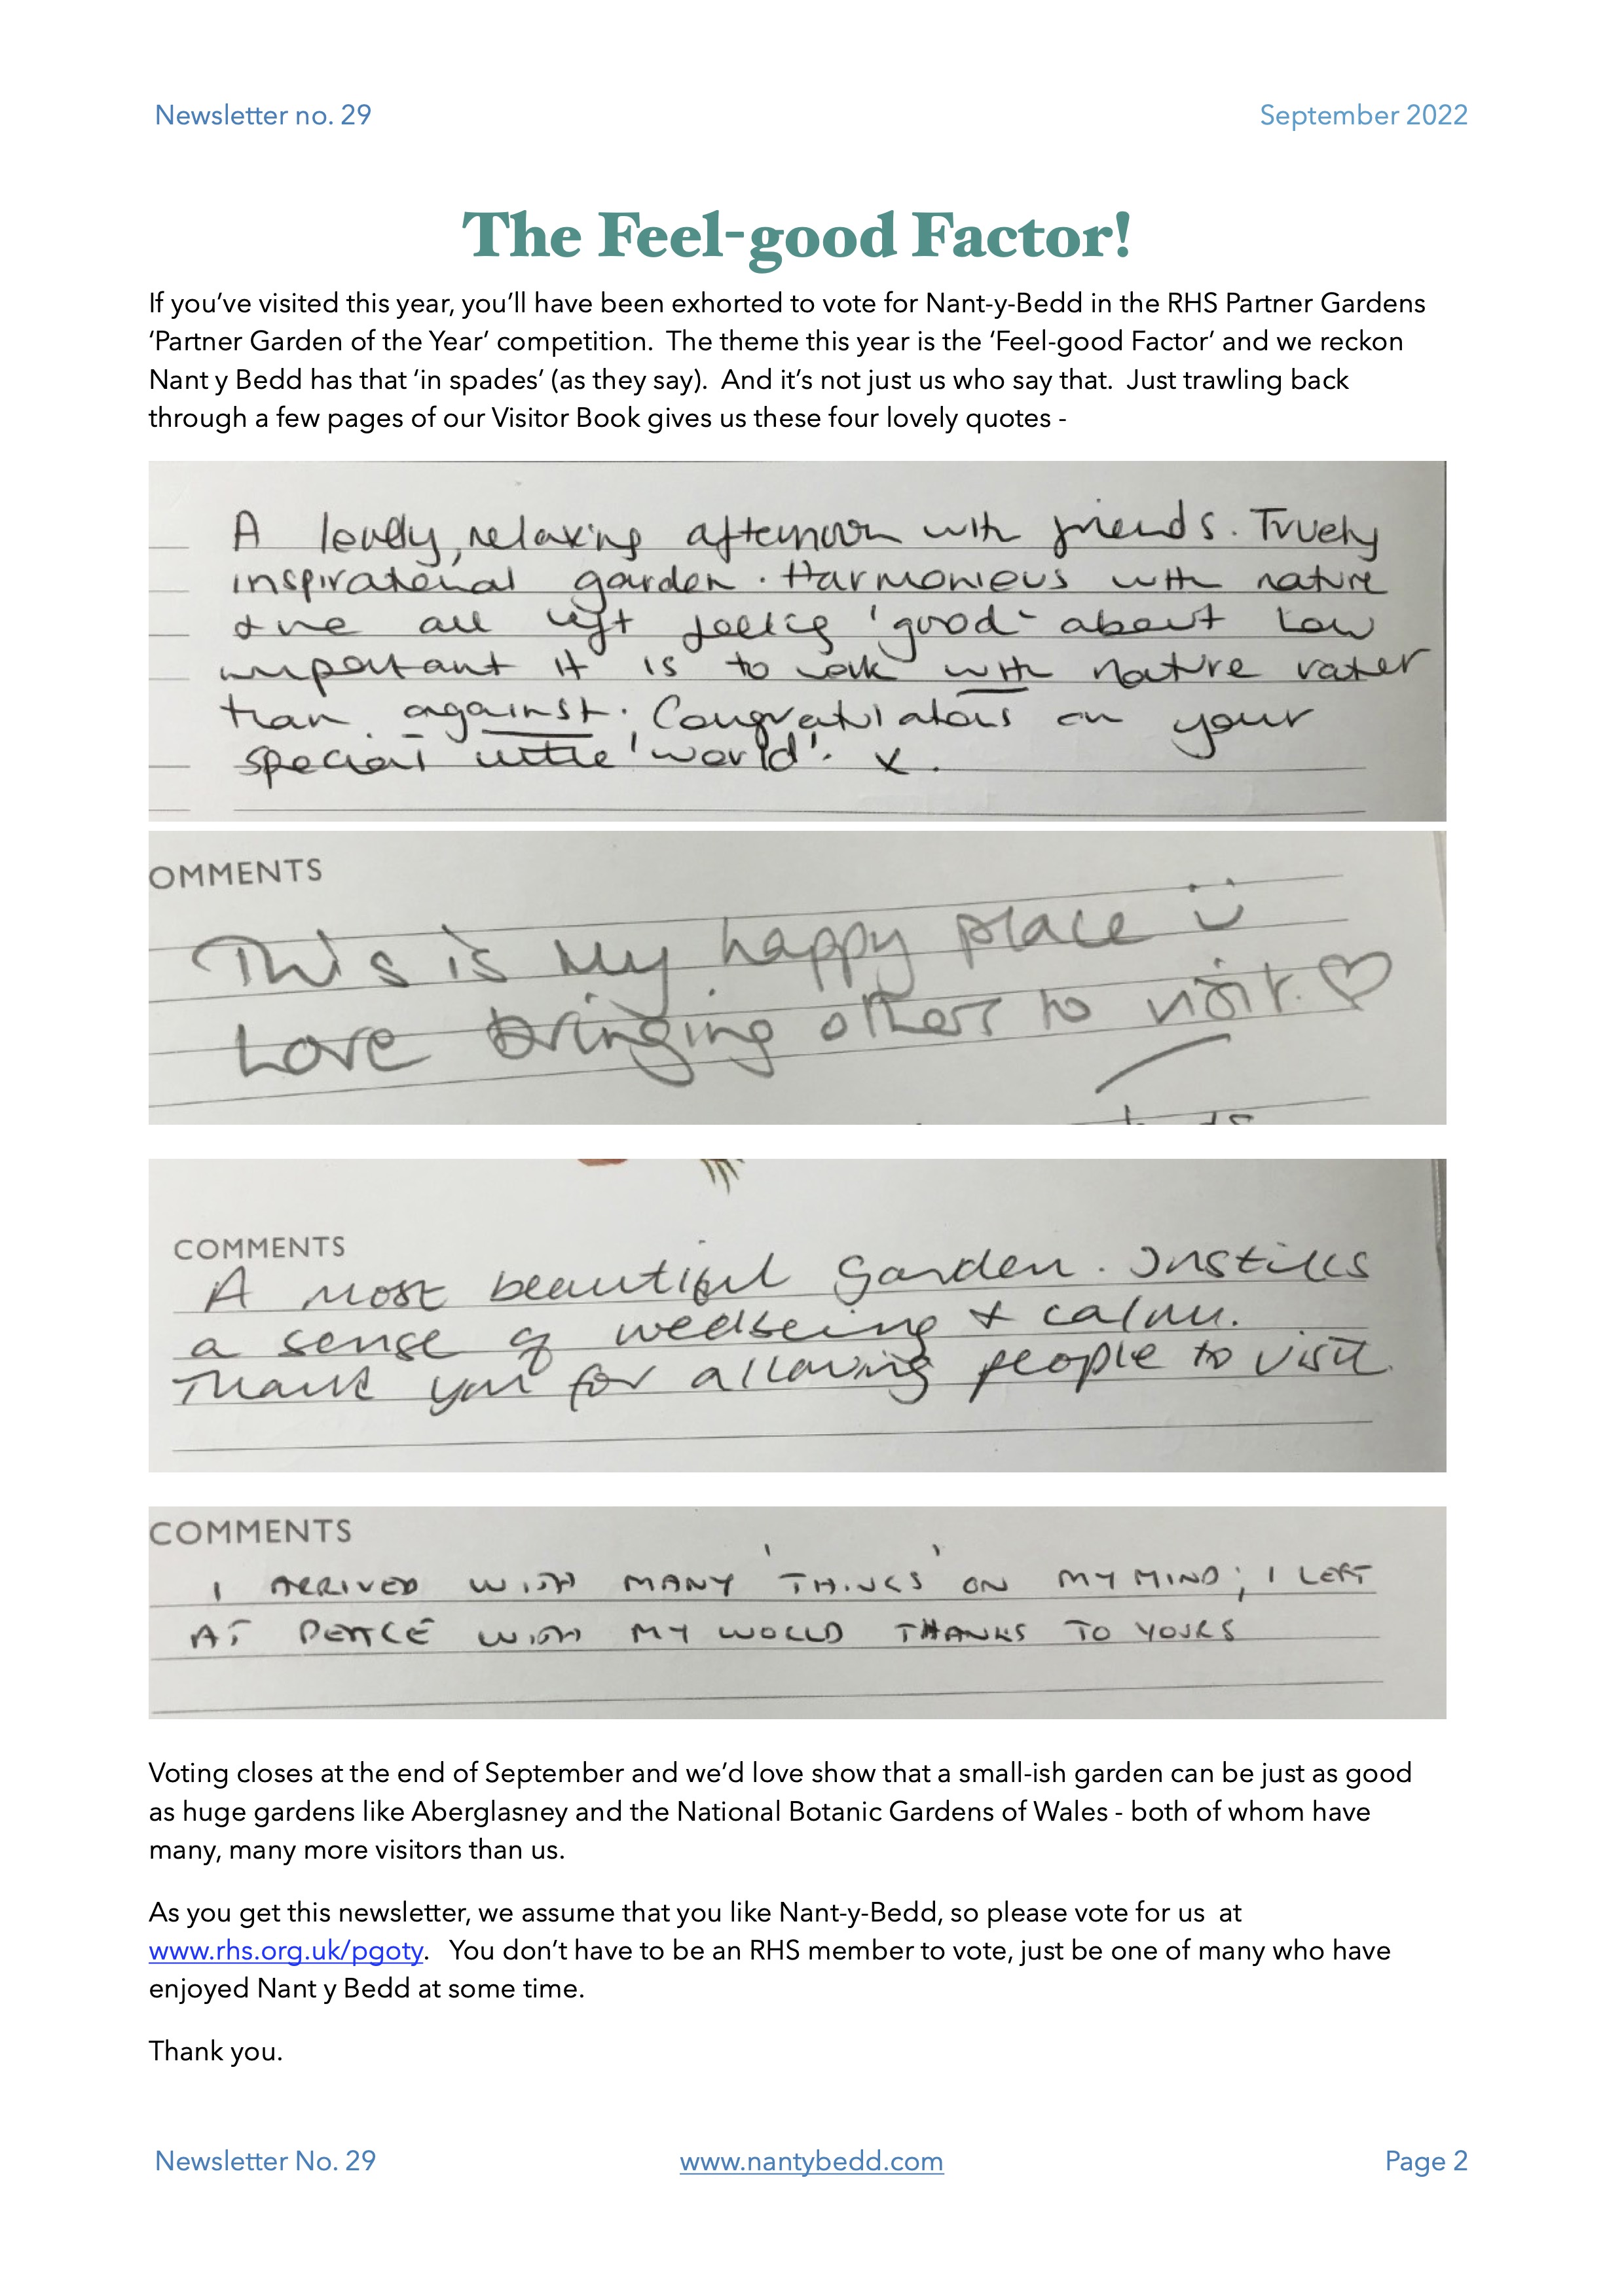 Newsletter no. 29
September 2022
The Feel-good Factor!
If you’ve visited this year, you’ll have been exhorted to vote for Nant-y-Bedd in the RHS Partner Gardens
‘Partner Garden of the Year’ competition.  The theme this year is the ‘Feel-good Factor’ and we reckon
Nant y Bedd has that ‘in spades’ (as they say).  And it’s not just us who say that.  Just trawling back
through a few pages of our Visitor Book gives us these four lovely quotes -
A lovely, relaxing afternoon with friends. Truely
inspirational garden. Harmonious with nature
& we all left feeling 'good' about how
important it is to work with nature rather
than against. Congratulations on your
special little 'world'. x.
OMMENTS
This is my happy place
Love bringing others to visit. ♡
COMMENTS
A most beautiful garden. Instills
a sense of wellbeing & calm.
Thank you for allowing people to visit.
COMMENTS
I ARRIVED WITH MANY 'THINGS' ON MY MIND; I LEFT
AT PEACE WITH MY WORLD THANKS TO YOURS
Voting closes at the end of September and we’d love show that a small-ish garden can be just as good
as huge gardens like Aberglasney and the National Botanic Gardens of Wales - both of whom have
many, many more visitors than us.
As you get this newsletter, we assume that you like Nant-y-Bedd, so please vote for us  at
www.rhs.org.uk/pgoty.   You don’t have to be an RHS member to vote, just be one of many who have
enjoyed Nant y Bedd at some time.
Thank you.
Newsletter No. 29
www.nantybedd.com
Page 2